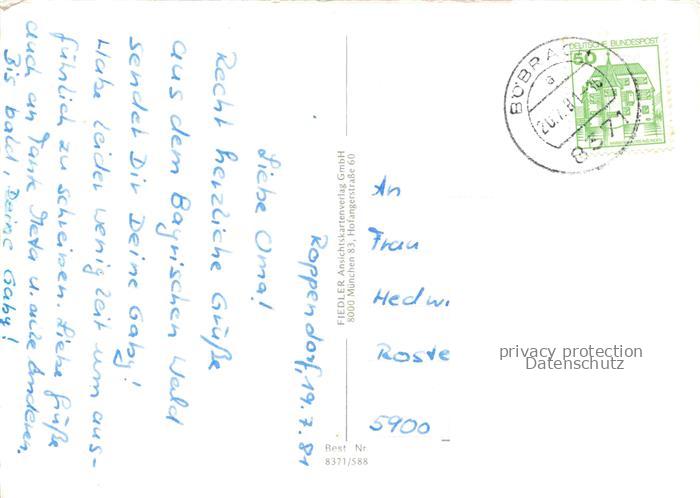 Roppendorf, 19.7.81
Liebe Oma!
Recht herzliche Grüße
aus dem Bayrischen Wald
sendet Dir Deine Gaby!
Habe leider wenig Zeit um aus-
führlich zu schreiben. Liebe Grüße
auch an Tante Meta u. alle Anderen.
Bis bald, Deine Gaby!
FIEDLER Ansichtskartenverlag GmbH
8000 München 83, Hofangerstraße 60
Best Nr.
8371/588
DEUTSCHE BUNDESPOST
50
BÖBRACH
a
20.7.81-16
8371
An
Frau
Hedwi
Roste
5900
privacy protection
Datenschutz